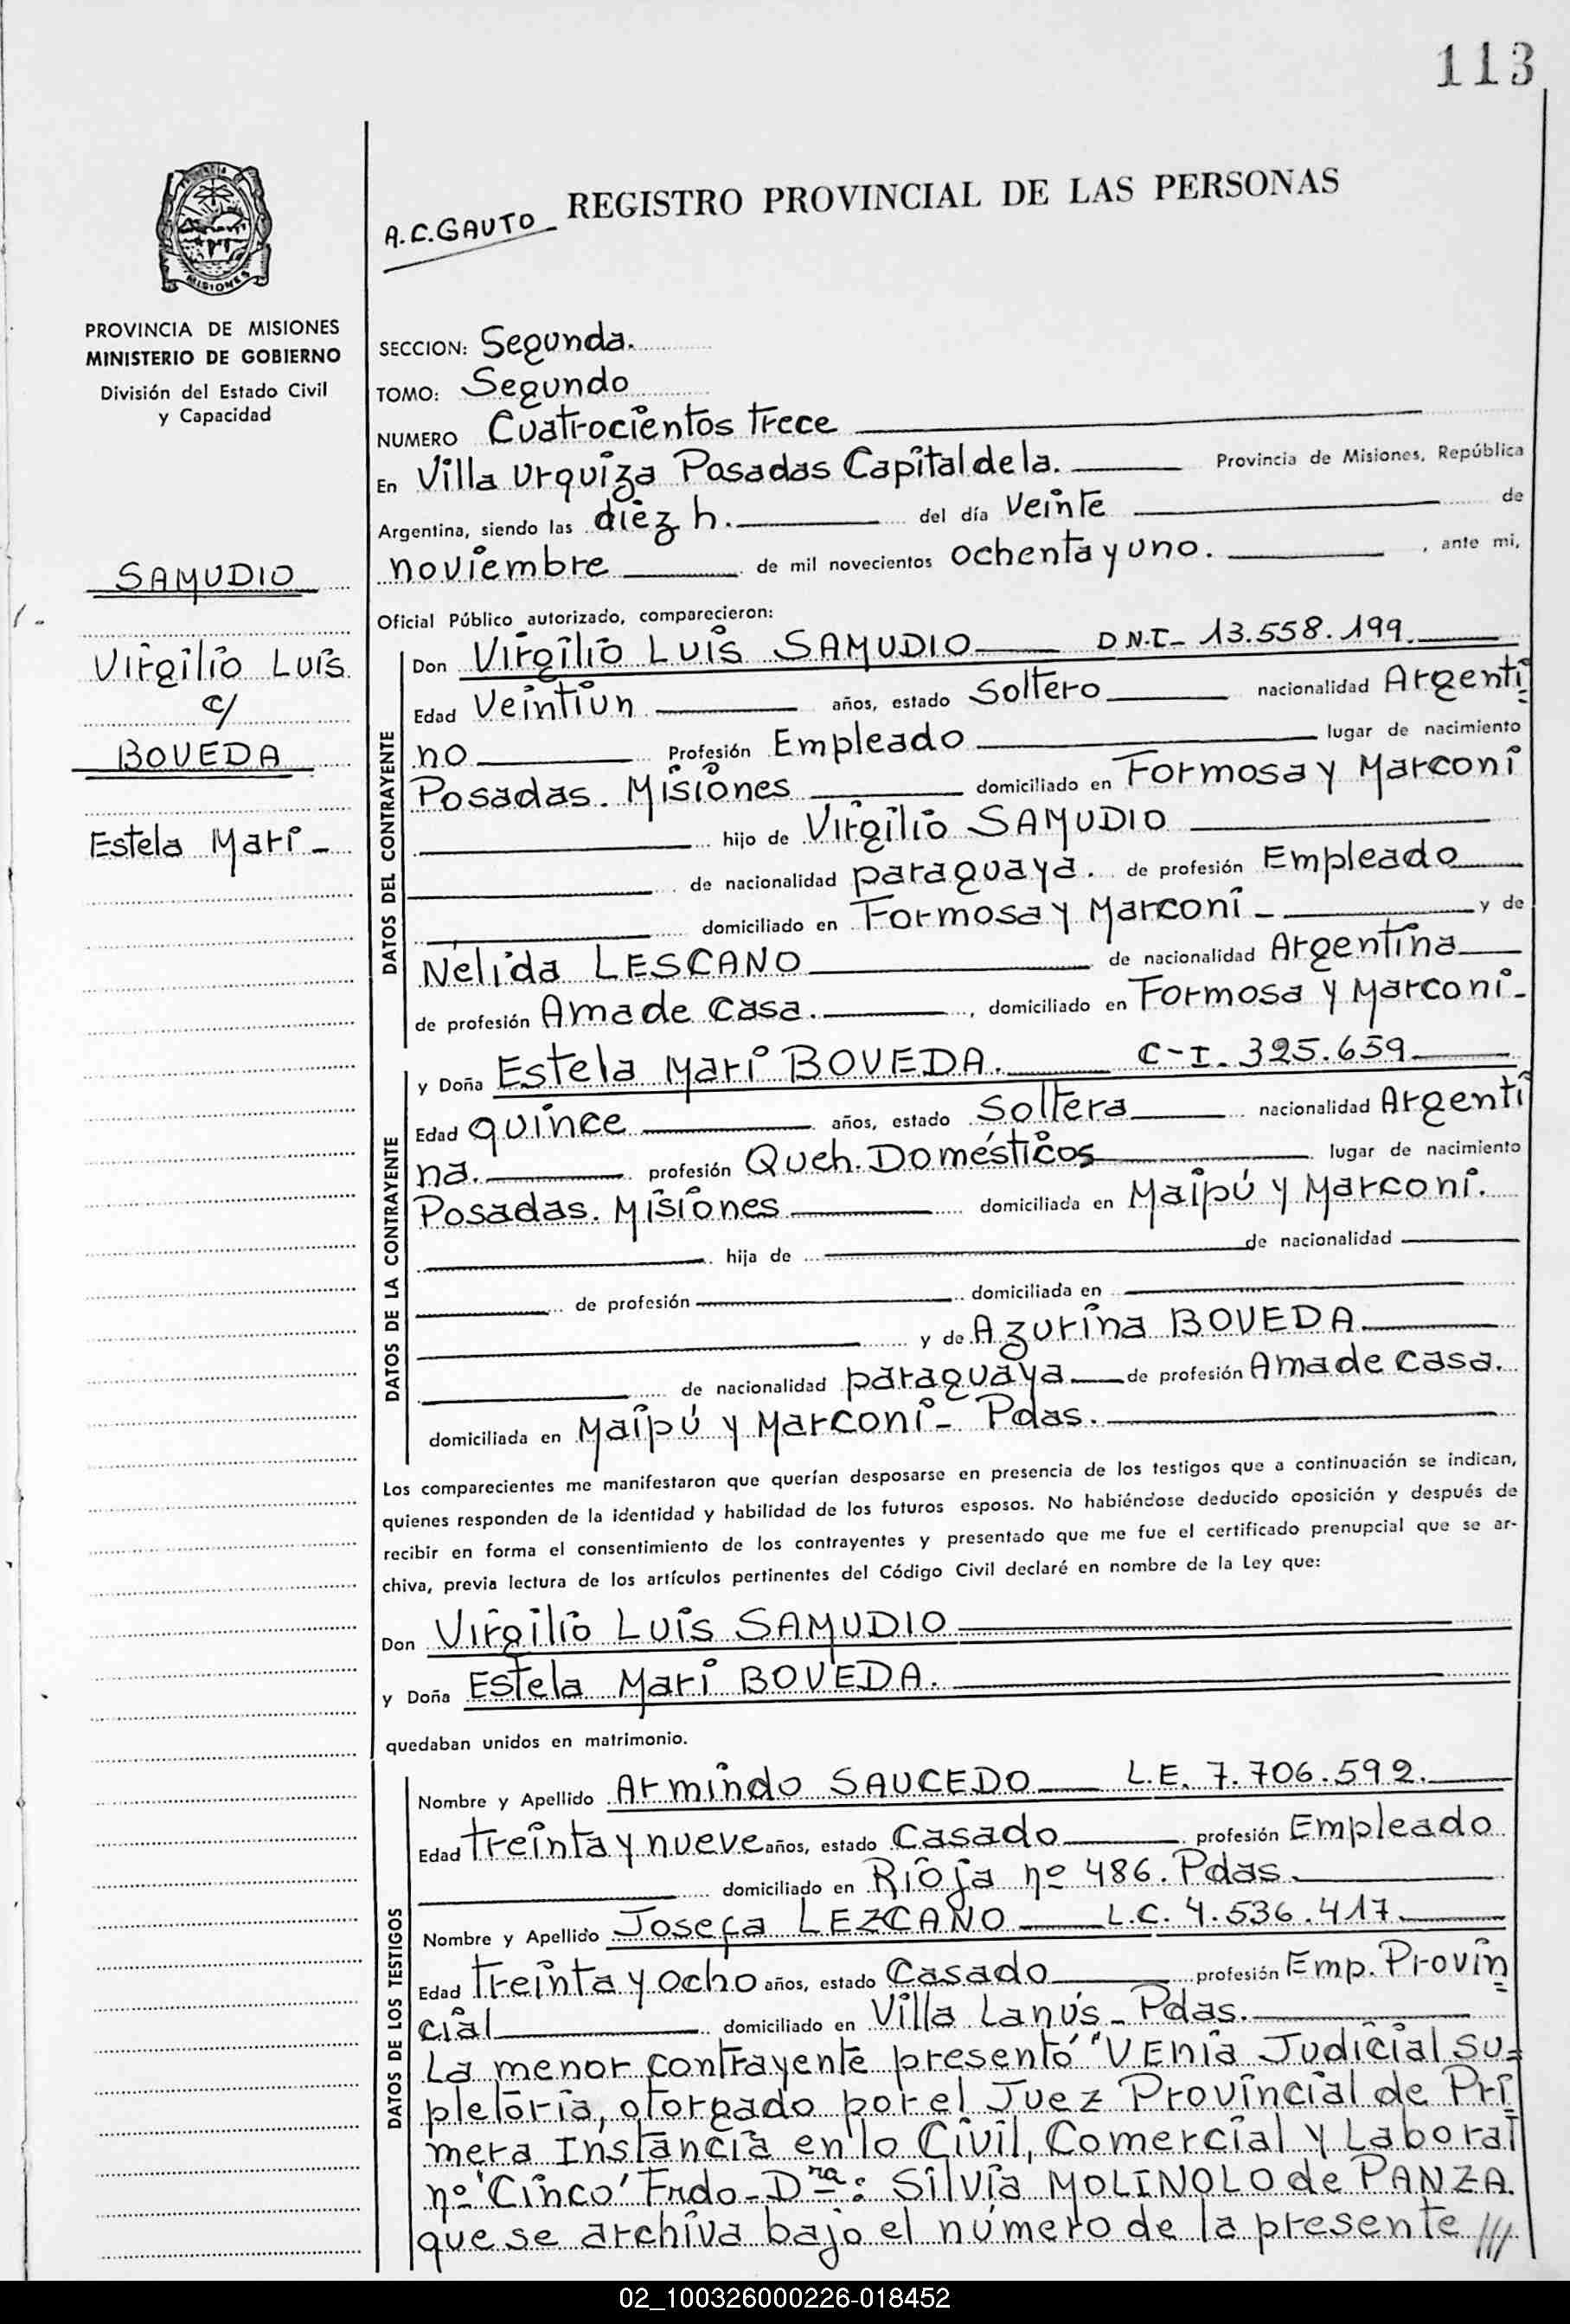 113
REGISTRO PROVINCIAL DE LAS PERSONAS
A.C.GAUTO
MISIONES
PROVINCIA DE MISIONES
MINISTERIO DE GOBIERNO
División del Estado Civil
y Capacidad
SAMUDIO
Virgilio Luis
c/
BOVEDA
Estela Mari -
SECCION: Segunda.
TOMO: Segundo
NUMERO Cuatrocientos trece
En Villa Urquiza Posadas Capital de la. Provincia de Misiones, República
Argentina, siendo las diez h. del día Veinte de
noviembre de mil novecientos ochenta y uno. , ante mi,
Oficial Público autorizado, comparecieron:
DATOS DEL CONTRAYENTE
Don Virgilio Luis SAMUDIO D.N.I- 13.558.199.
Edad Veintiun años, estado Soltero nacionalidad Argenti
no Profesión Empleado lugar de nacimiento
Posadas. Misiones domiciliado en Formosa y Marconi
hijo de Virgilio SAMUDIO
de nacionalidad paraguaya. de profesión Empleado
domiciliado en Formosa y Marconi - y de
Nelida LESCANO de nacionalidad Argentina
de profesión Ama de Casa. , domiciliado en Formosa y Marconi -
DATOS DE LA CONTRAYENTE
y Doña Estela Mari BOVEDA. C-I. 325.659
Edad quince años, estado Soltera nacionalidad Argenti
na. profesión Queh. Domésticos lugar de nacimiento
Posadas. Misiones domiciliada en Maipú y Marconi.
hija de de nacionalidad
de profesión domiciliada en
y de Azurina BOVEDA
de nacionalidad paraguaya de profesión Ama de casa.
domiciliada en Maipú y Marconi - Pdas.
Los comparecientes me manifestaron que querían desposarse en presencia de los testigos que a continuación se indican,
quienes responden de la identidad y habilidad de los futuros esposos. No habiéndose deducido oposición y después de
recibir en forma el consentimiento de los contrayentes y presentado que me fue el certificado prenupcial que se ar-
chiva, previa lectura de los artículos pertinentes del Código Civil declaré en nombre de la Ley que:
Don Virgilio Luis SAMUDIO
y Doña Estela Mari BOVEDA.
quedaban unidos en matrimonio.
DATOS DE LOS TESTIGOS
Nombre y Apellido Armindo SAUCEDO L.E. 7.706.592.
Edad treinta y nueve años, estado Casado profesión Empleado
domiciliado en Rioja nº 486. Pdas.
Nombre y Apellido Josefa LEZCANO L.C. 4.536.417.
Edad treinta y ocho años, estado Casado profesión Emp. Provin
cial domiciliado en Villa Lanús - Pdas.
La menor contrayente presentó "VEnia Judicial Su=
pletoria, otorgado por el Juez Provincial de Pri
mera Instancia en lo Civil, Comercial y Laboral
nº 'Cinco' Fndo-Dra: Silvia MOLINOLO de PANZA.
que se archiva bajo el número de la presente ///
02_100326000226-018452